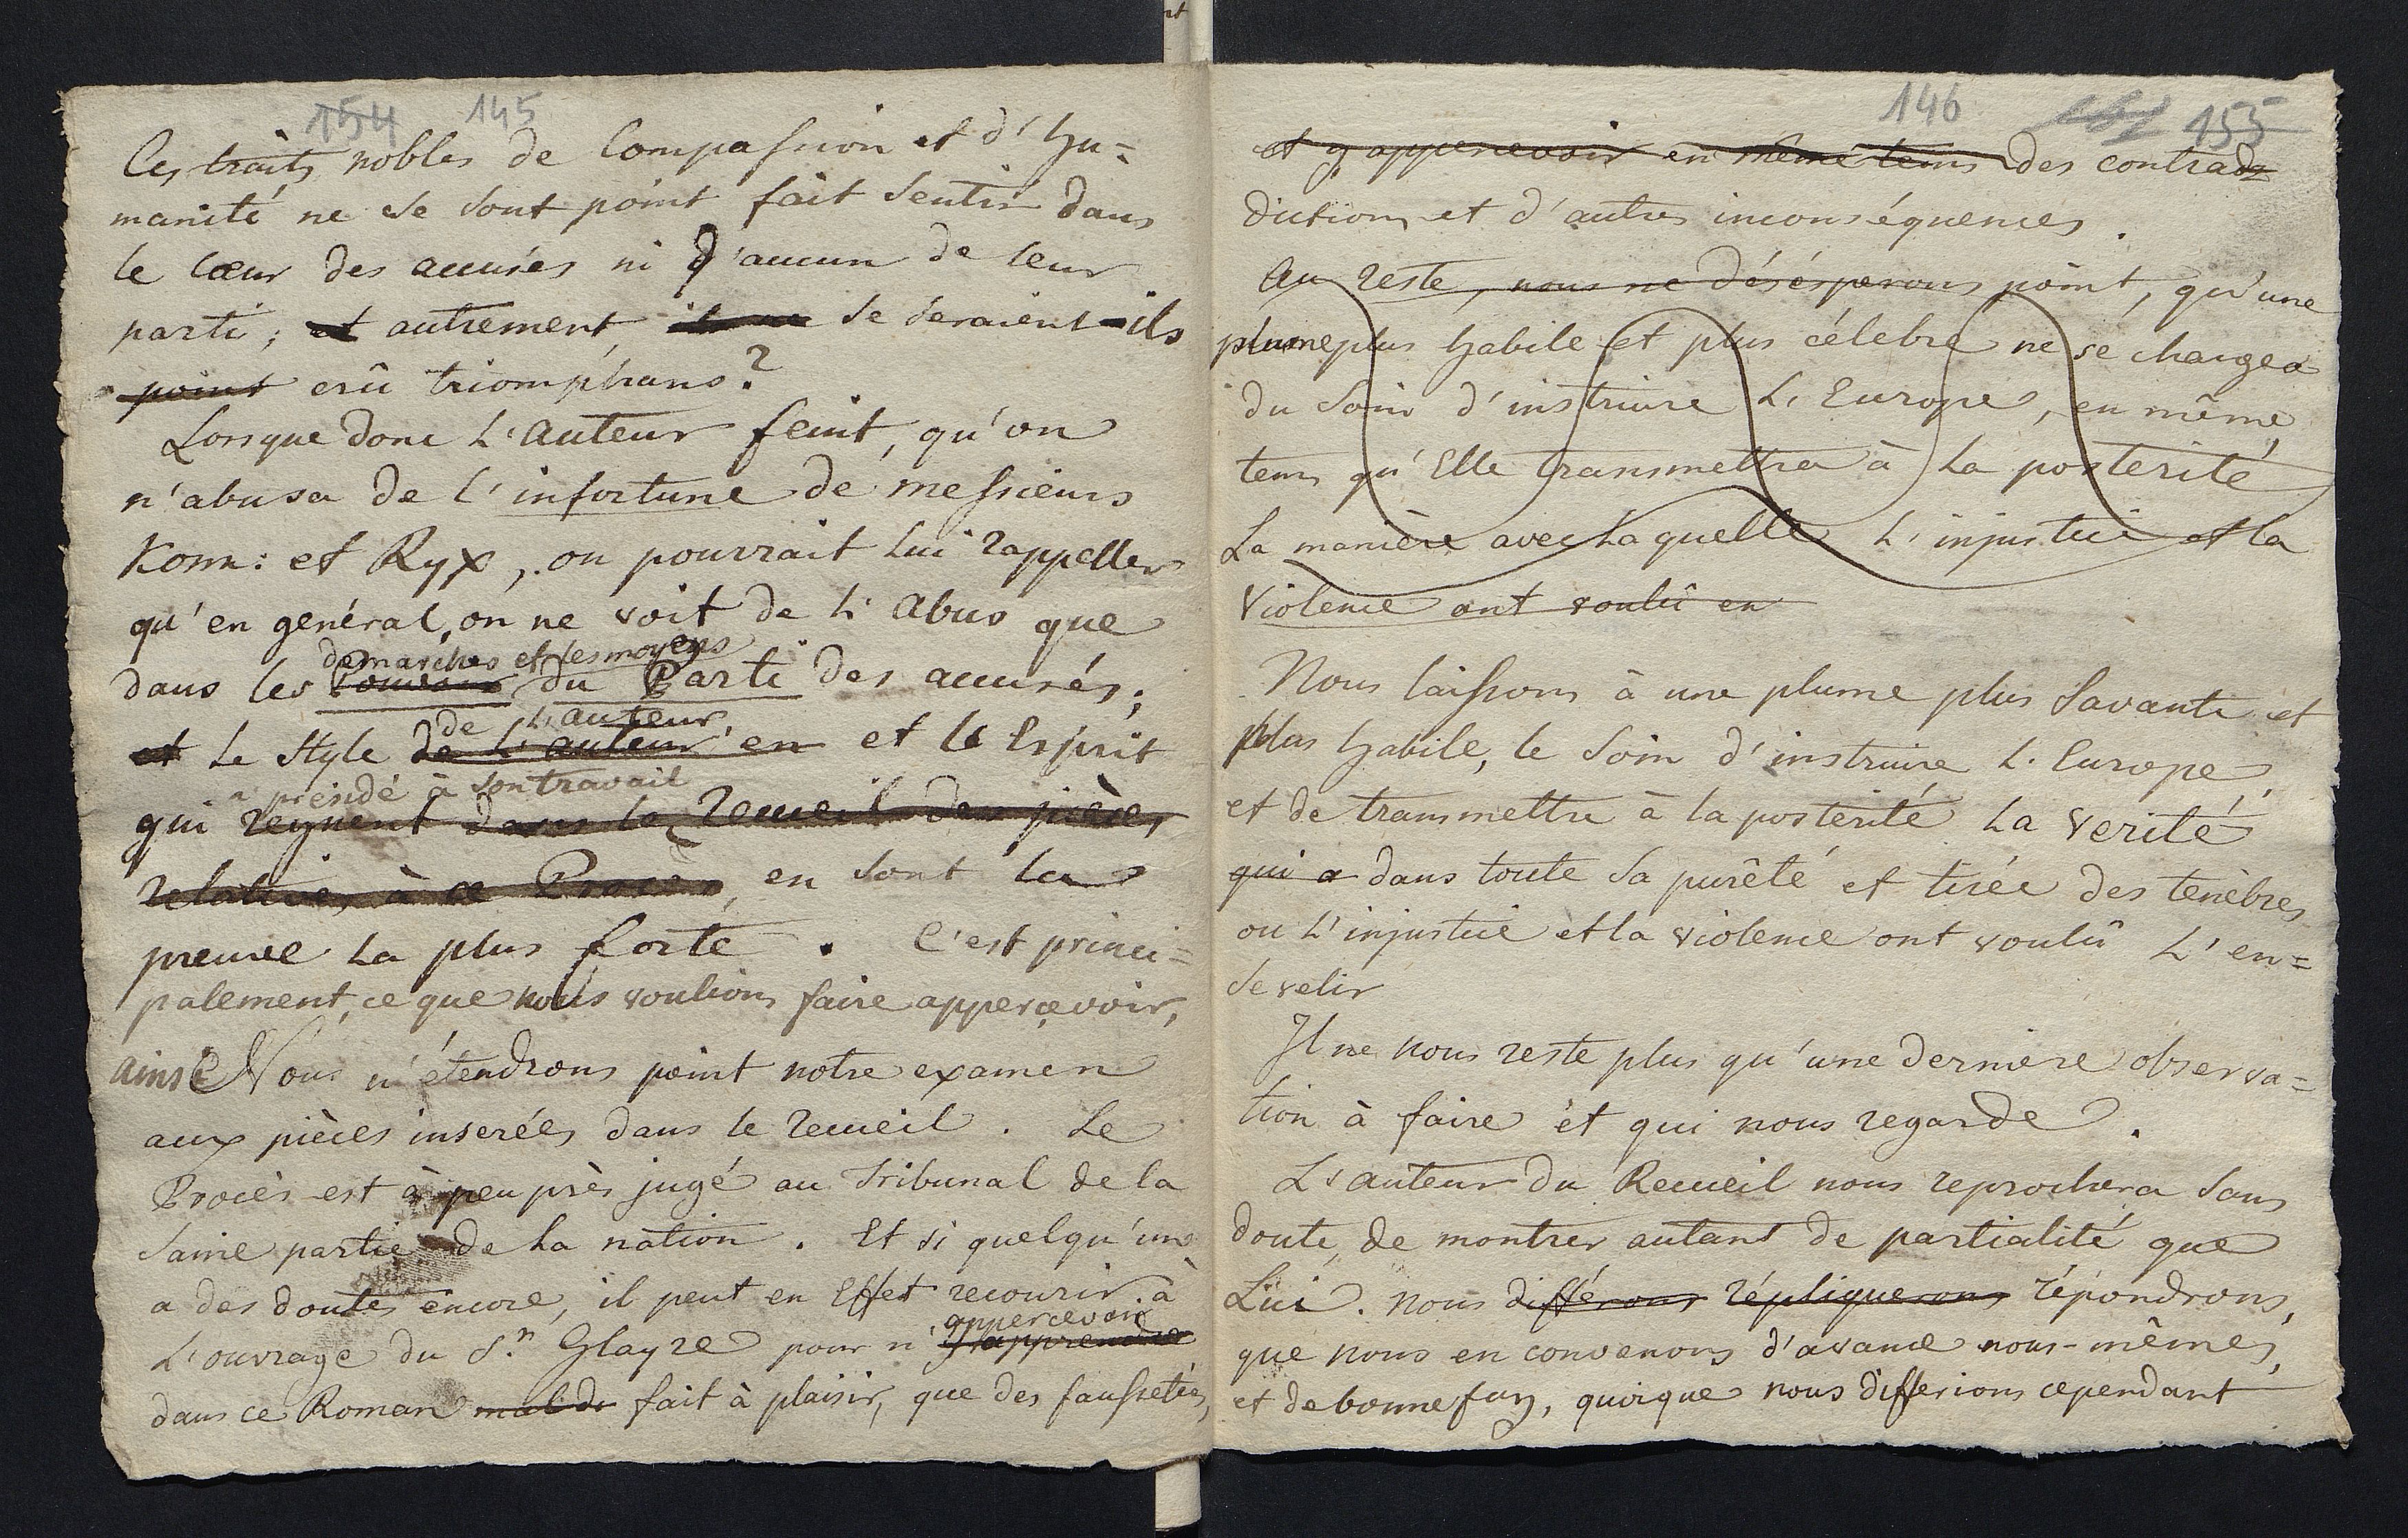 154 145
Ces traits nobles de Compassion et d'hu=
manité ne se sont point fait sentir dans
le Cœur des accusés ni d'aucun de leur
parti; et autrement, se seraient-ils
point crû triomphans?
Lorsque donc L'Auteur feint, qu'on
n'abusa de l'infortune de messieurs
Kom: et Ryx, on pourrait lui rappeller
qu'en genéral, on ne voit de L'Abus que
demarches et les moyens
dans les du Parti des accusés;
de L'auteur
et Le Style de L'auteur en et le Esprit
a présidé à son travail
qui regnent dans le Recueil des pièces
relatives à ce Procès, en sont la
preuve La plus forte. C'est princi=
palement, ce que nous voulions faire appercevoir,
ainsi Nous n'étendrons point notre examen
aux pièces inserées dans le recueil. Le
Procès est à peu près jugé au Tribunal de la
saine partie de La nation. Et si quelqu'un
a des doutes encore, il peut en Effet recourir à
appercevoir
L'ouvrage du Sr. Glayre pour n'y apprendre
dans ce Roman mal de fait à plaisir, que des faussetés,
146 155
et y appercevoir en même tems des contra
dictions et d'autres inconséquences.
Au reste, nous ne désésperons point, qu'une
plume plus habile et plus célebre ne se chargea
du soin d'instruire L'Europe, en même
tems qu'Elle transmettra à La posterité
La manière avec Laquelle L'injustice et la
Violence ont voulû en
Nous laissons à une plume plus Savante et
plus habile, le soin d'instruire L'Europe,
et de transmettre à la posterité La verité
qui a dans toute sa purêté et tirée des tenèbres
ou L'injustice et la violence ont voulû L'en=
sevelir
Il ne nous reste plus qu'une derniere observa=
tion à faire et qui nous regarde.
L'auteur du Recueil nous reprochera sans
doute, de montrer autant de partialité que
Lui. nous différons répliquerons répondrons,
que nous en convenons d'avance nous-mêmes,
et de bonne foy, quoique nous differions cependant